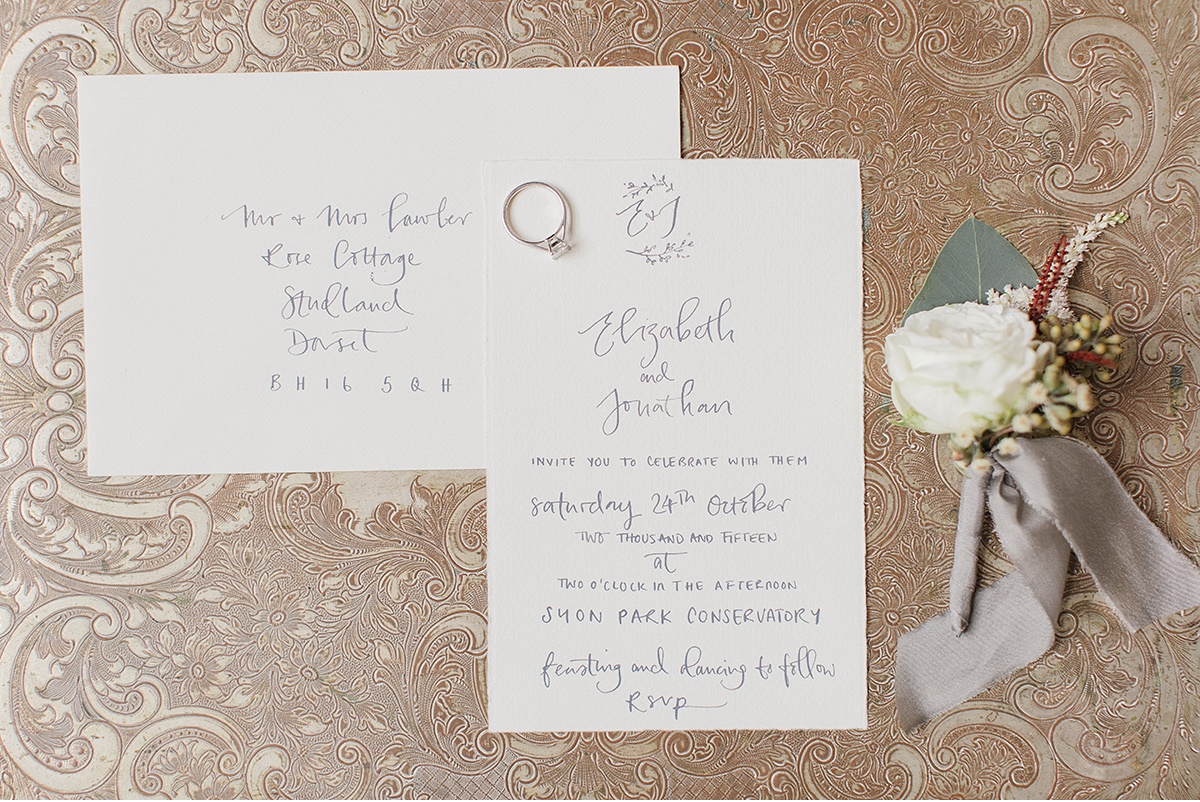 Mr + Mrs Lawler
Rose Cottage
Studland
Dorset
BH16 5QH
E & J
Elizabeth
and
Jonathan
INVITE YOU TO CELEBRATE WITH THEM
saturday 24th October
TWO THOUSAND AND FIFTEEN
at
TWO O'CLOCK IN THE AFTERNOON
SYON PARK CONSERVATORY
feasting and dancing to follow
RSVP